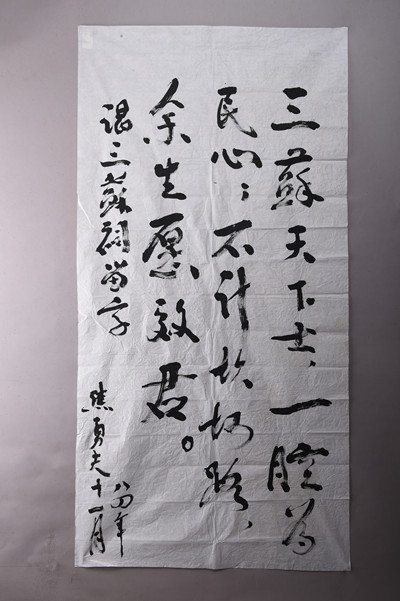 三蘇天下士、一腔为
民心；不计坎坷路、
余生愿效君。
谒三蘇祠留字
焦勇夫十一月
八四年